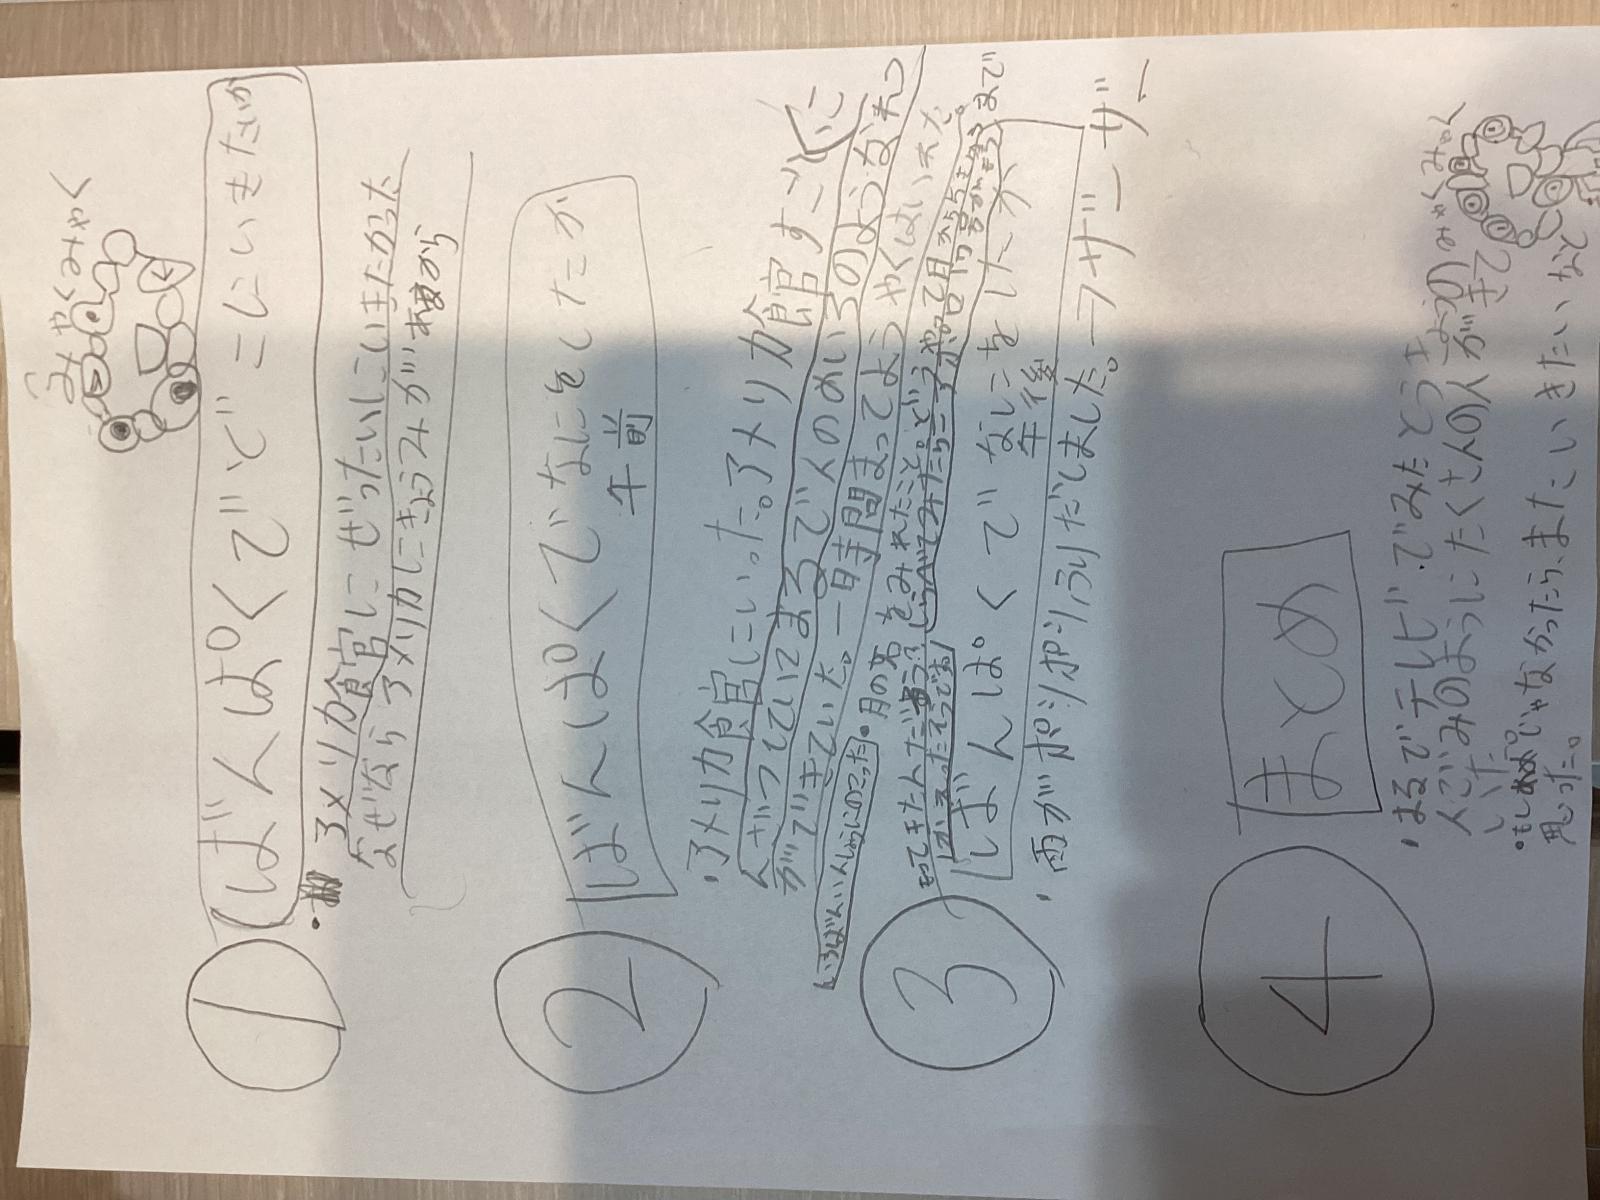 みゃくみゃく
① ばんぱくでどこにいきたいか
・アメリカ館にぜったいにいきたかった
なぜならアメリカにきょうみがあるから
② ばんぱくでなにをしたか
午前
・アメリカ館にいった。アメリカ館すごくに
んざつしていてまるで人のめいろのようなれつ
ができていた。一時間まってようやくはいれた。
いちばんいんしょうにのこった
・月の石をみれたこと。
③ ばんぱくでなにをしたか
午後
・雨がポツポツふりだしました。ーザーザー
④ まとめ
・まるでテレビでみたとうきょうの
人ごみのようにたくさんの人がきて
いた。
・もし雨じゃなかったら、またいきたいなと
思った。
みゃくみゃく